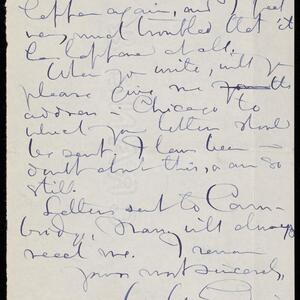 happen again, and I feel
very much troubled that it
has happened at all.
When you write, will you
please give me the
address in Chicago to
which your letters should
be sent. I have been in
doubt about this, & am so
still.
Letters sent to Cam-
bridge, Mass, will always
reach me. I remain
yours most sincerely,